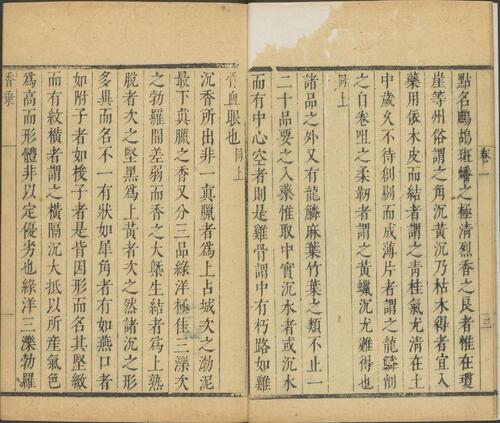 卷一
點名鷓鴣斑燔之極清烈香之良者惟在瓊
崖等州俗謂之角沉黃沉乃枯木得者宜入
藥用依木皮而結者謂之青桂氣尤清在土
中歲久不待創剔而成薄片者謂之龍鱗削
之自卷咀之柔韌者謂之黃蠟沉尤難得也
同上
諸品之外又有龍鱗麻葉竹葉之類不止一
二十品要之入藥惟取中實沉水者或沉水
而有中心空者則是雞骨謂中有朽路如雞
三
骨血眼也同上
沉香所出非一真臘者為上占城次之渤泥
最下真臘之香又分三品綠洋極佳三濼次
之勃羅間差弱而香之大槩生結者為上熟
脫者次之堅黑為上黃者次之然諸沉之形
多異而名不一有狀如犀角者有如燕口者
如附子者如梭子者是皆因形而名其堅緻
而有紋橫者謂之橫隔沉大抵以所産氣色
為高而形體非以定優劣也綠洋三濼勃羅
香乘